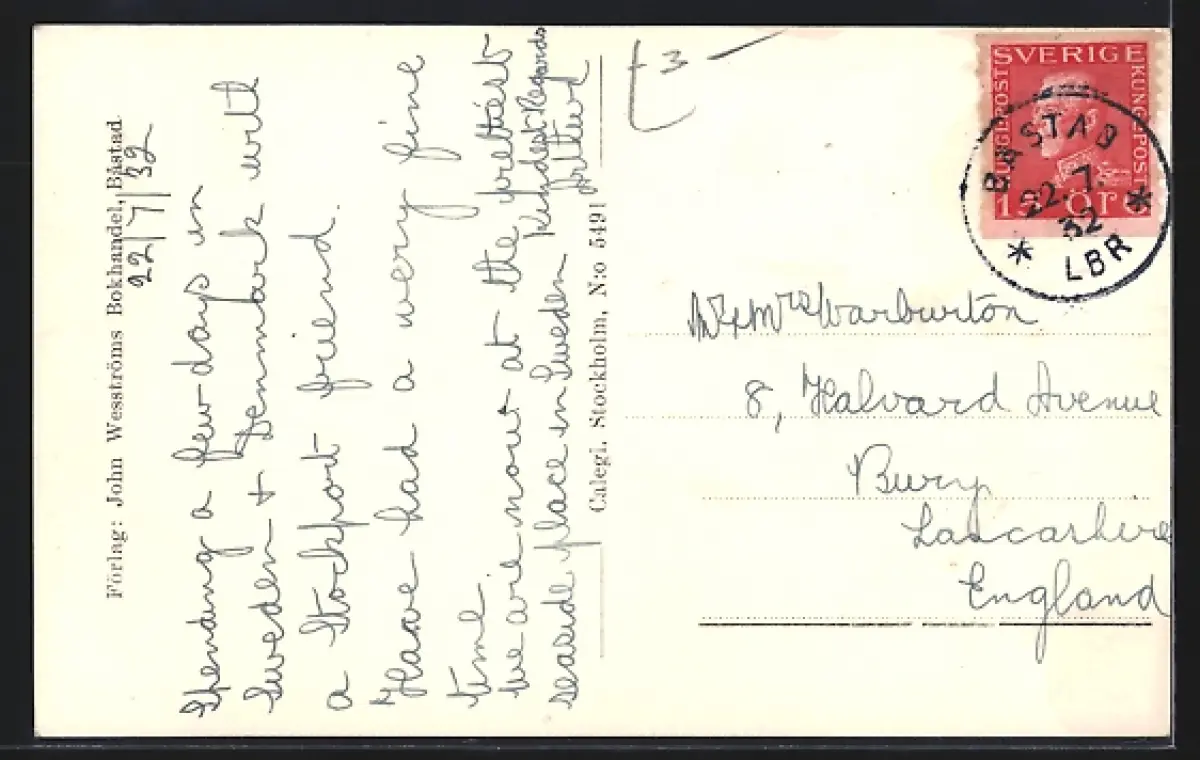 Förlag: John Wesströms Bokhandel, Båstad
22/7/32
Spending a few days in
Sweden + Denmark with
a Stockport friend.
Have had a very fine
time
We are now at the prettiest
seaside place in Sweden
Kindest Regards
Calegi. Stockholm, N:o 5491
t 3 —
SVERIGE
KUNGL POST
KUNGL POST
15 ÖRE
BÅSTAD
22.7.
32
* LBR *
Mr & Mrs Warburton
8, Halvard Avenue
Bury
Lancashire
England